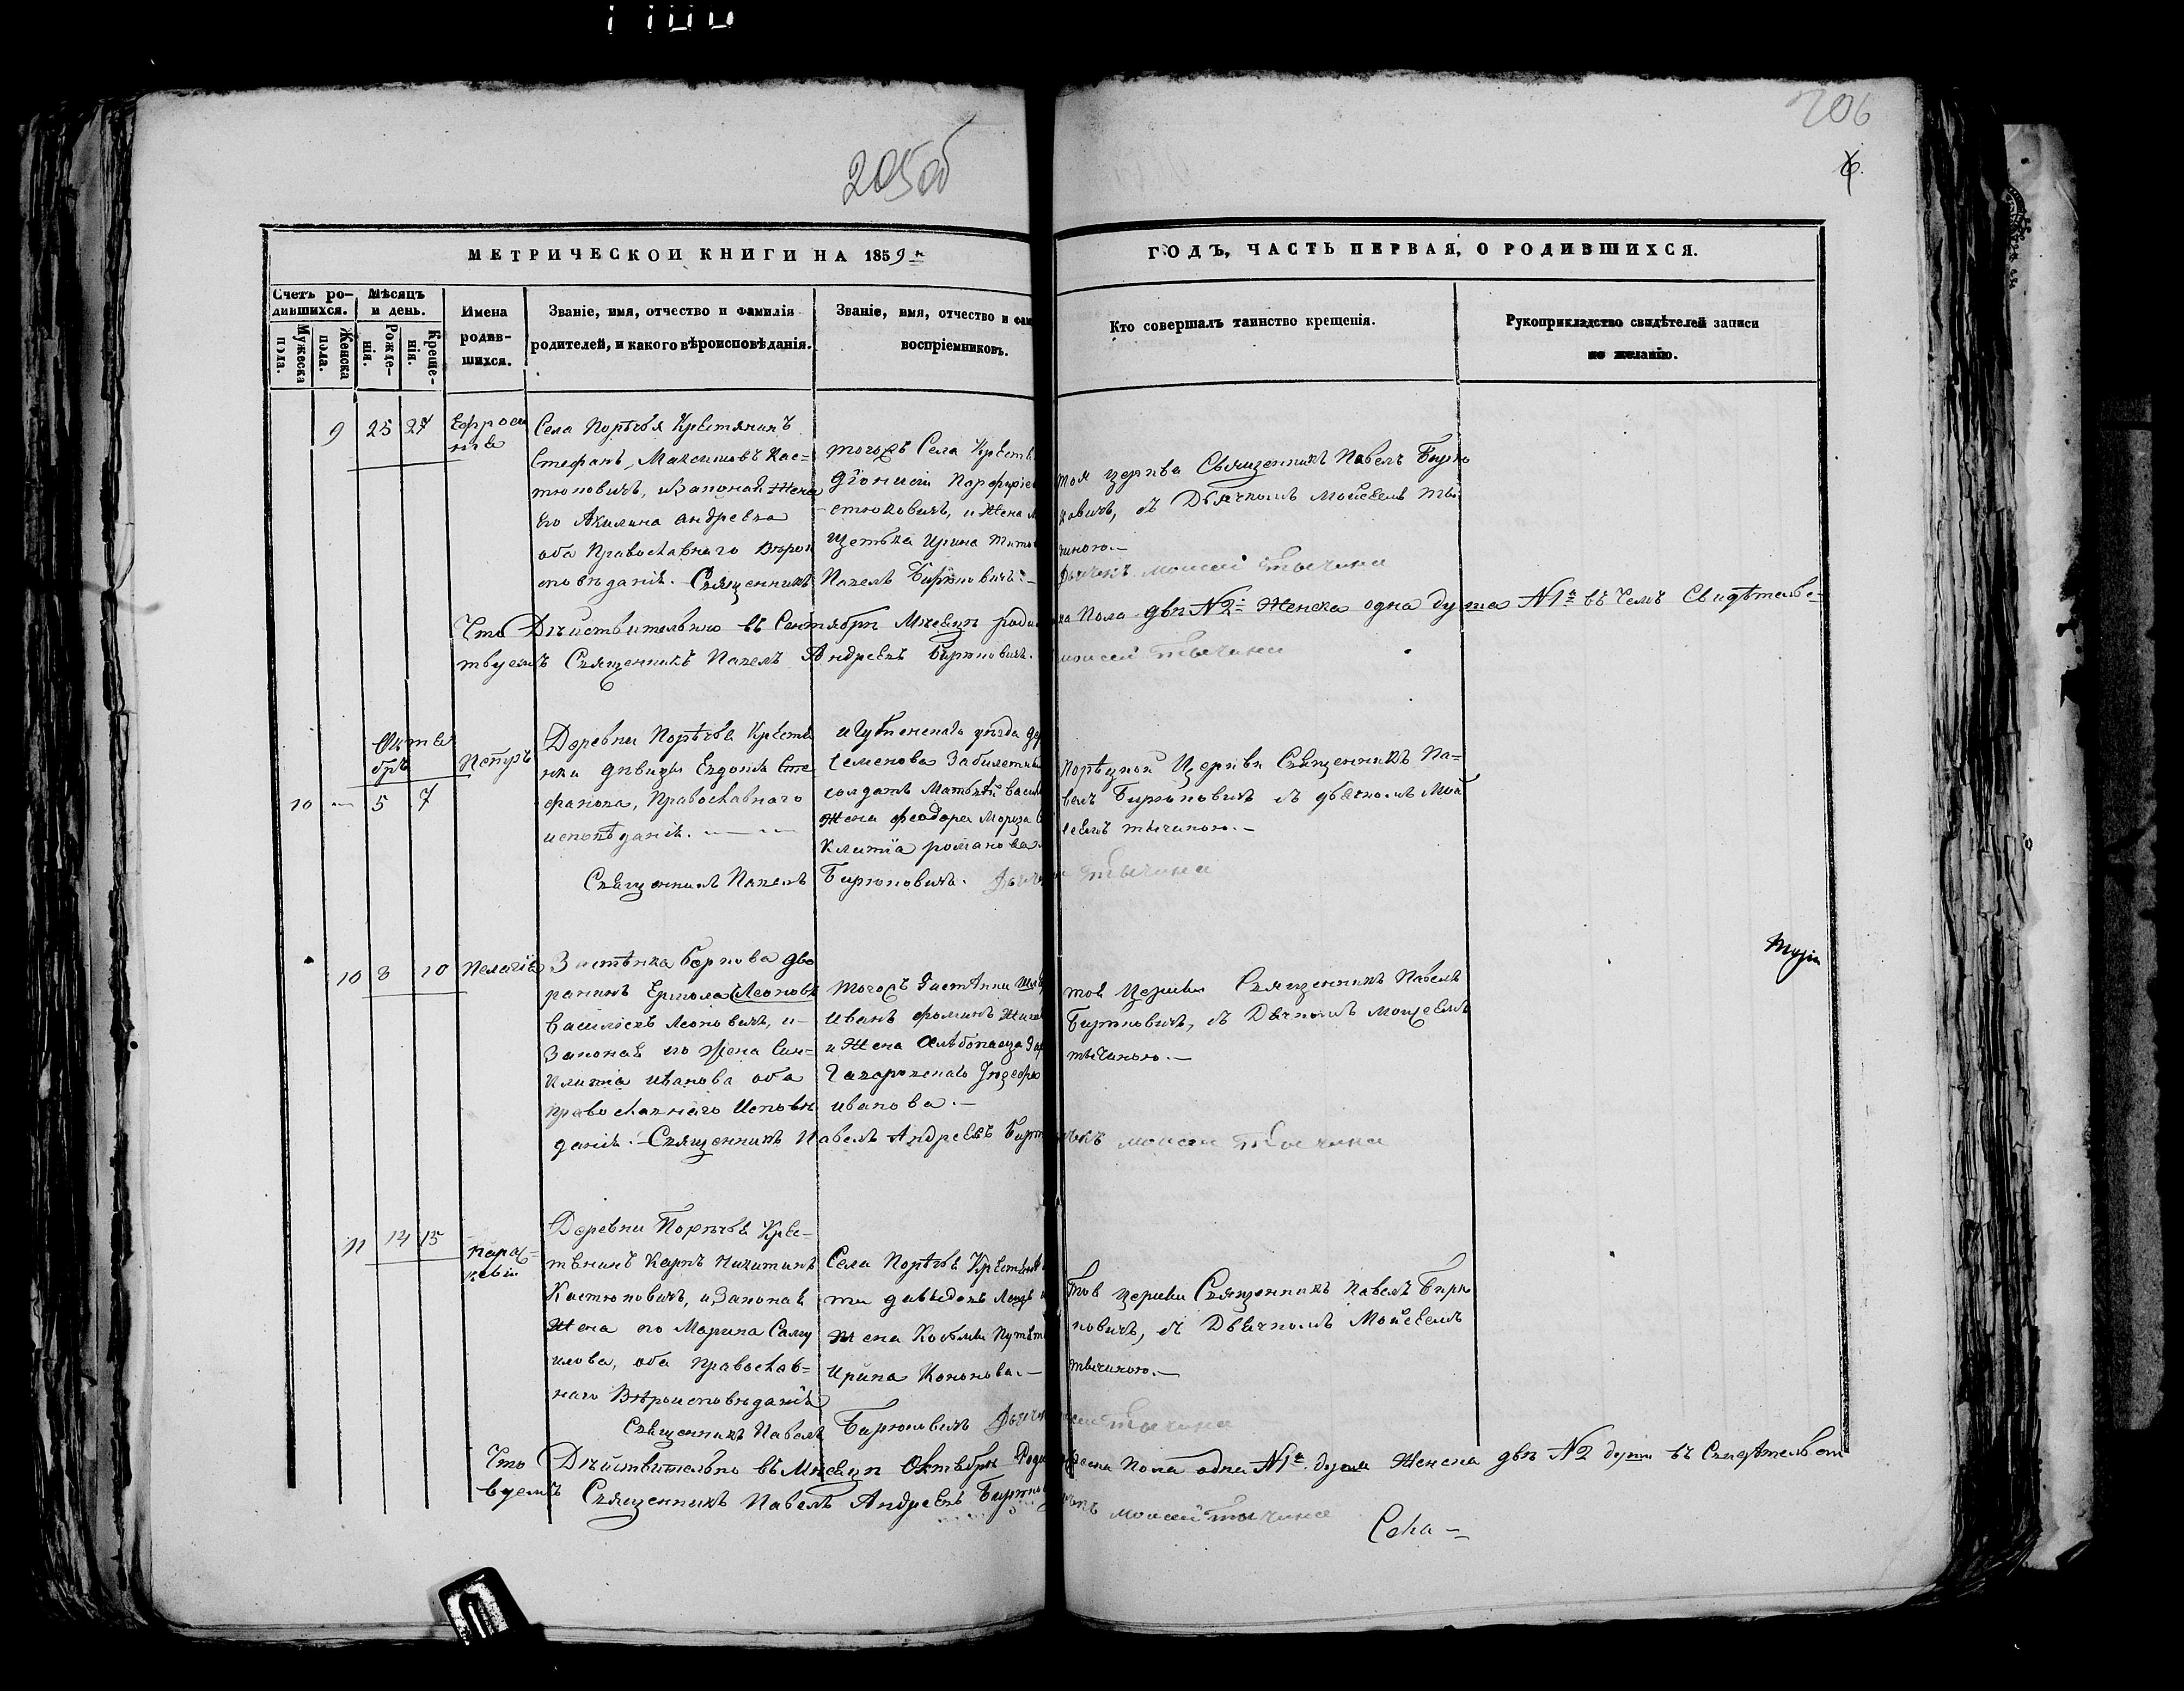 205об
206
6.
МЕТРИЧЕСКОИ КНИГИ НА 1859
ГОДЪ, ЧАСТЬ ПЕРВАЯ, О РОДИВШИХСЯ.
Счетъ ро-
дившихся.
Мужеска
пола.
Женска
пола.
Мѣсяцъ
и день.
Рожде-
нія.
Креще-
нія.
Имена
родив-
шихся.
Званіе, имя, отчество и фамилія
родителей, и какого вѣроисповѣданія.
Званіе, имя, отчество и фам
воспріемниковъ.
Кто совершалъ таинство крещенія.
Рукоприкладство свидѣтелей записи
по желанію.
9 25 27
Села Порѣчья Крестянинъ
Стефанъ Максимовъ Кас-
тюковичъ, и Законная Жена
Его Акилина Андреева
оба Православнаго Вѣрои
сповѣданія. Священникъ
тогожъ Села Крестя
Діонисій Порфирiев
етюковичъ, и Жена М
Ирина
Павелъ Бирюковичъ.
тоя церкви Священникъ Павелъ Бирю
ковичъ, съ Дьячкомъ Мойсеемъ Ты
чиною.
Дьячекъ Моисей Тычина
Что Дѣиствительно въ Сентябрѣ Мѣсецѣ роди
ка Пола двѣ №2 Женска одна душа №1 въ Чемъ Свидѣтельс-
твуемъ Священникъ Павелъ Андреевъ Бирюковичъ.
Моисей Тычина
Октя
бръ
10 — 5 7
Петръ
Деревни Порѣчья Крестя
нки дѣвицы Евдокія Сте
фанова, Православнаго
исповѣданія.
Священникъ Павелъ
Игуменскаго уѣзда де
Семенова
солдатъ Матвѣй Васи
Жена Феодора
романова
Бирюковичъ.
Порѣцкой Церкви Священникъ Па-
велъ Бирюковичъ съ дьячкомъ Мой
сеемъ тычиною.
Тычина
10 8 10
Пелагія
Застѣнка Боркова дво
ранинъ Ермола Леоновъ
Василіевъ Леоновичъ, и
Законая его Жена Син-
клитіа Иванова оба
православнаго Исповѣ
данія. Священникъ Павелъ Андреевъ Бирю
тогожъ
Иванъ фоминъ
и Жена
Иванова.
той Церкви Священникъ Павелъ
Бирюковичъ, съ Дьячкомъ Моисеемъ
тычиною.
Моисей Тычина
11 14 15
Парас-
кевія
Деревни Порѣчья Крес-
тянинъ Карпъ Никитинъ
Кастюковичъ, и Законая
Жена его Марина Саму
илова, оба православ-
наго Вѣроисповѣданія
Священникъ Павелъ
Села Порѣчья Крестянин
Жена
Ирина Кононова.
Бирюковичъ
той Церкви Священникъ Павелъ Бирю
ковичъ, съ Дьячкомъ Мойсеемъ
тычиною.
Тычина
Что Дѣйствительно въ Мѣсецѣ Октябрѣ Роди
жеска Пола одна №1 душа Женска двѣ №2 души въ Свидѣтельст
вуемъ Священникъ Павелъ Андреевъ Бирюков
Моисей Тычина